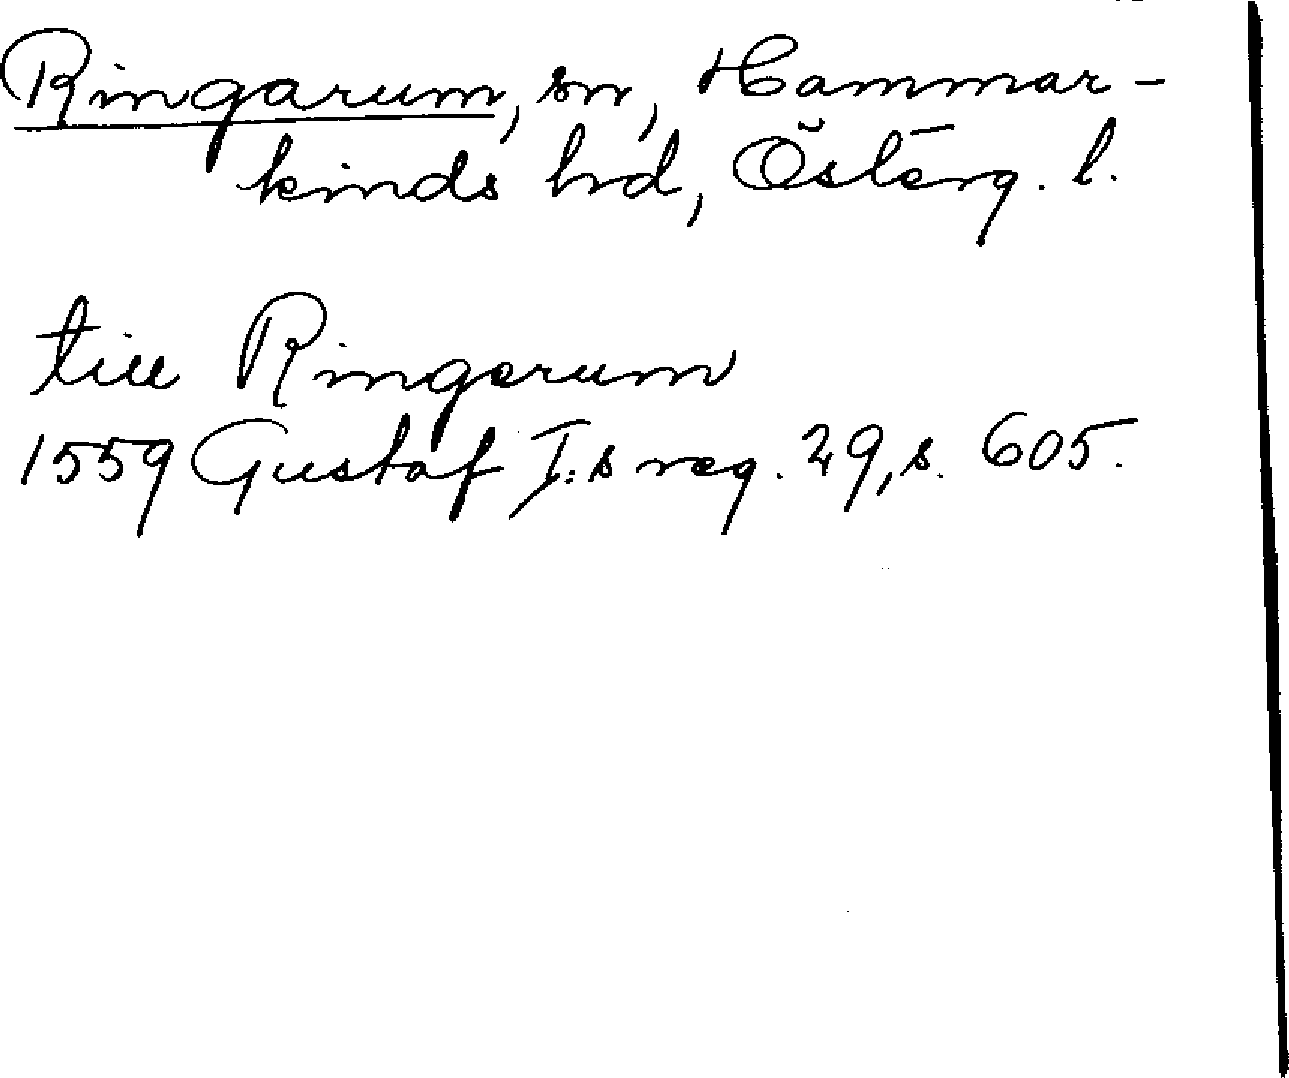 Ringarum, sn, Hammar-
kinds hrd, Österg. l.
till Ringarum
1559 Gustaf I:s reg. 29, s. 605.